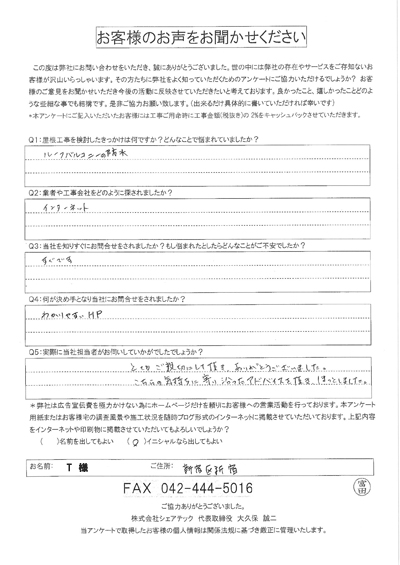 お客様のお声をお聞かせください
この度は弊社にお問い合わせをいただき、誠にありがとうございました。世の中には弊社の存在やサービスをご存知ないお
客様が沢山いらっしゃいます。その方たちに弊社をよく知っていただくためのアンケートにご協力いただけるでしょうか？ お客
様のご意見をお聞かせいただき今後の活動に反映させていただきたいと考えております。良かったこと、嬉しかったことどのよ
うな些細な事でも結構です。是非ご協力お願い致します。（出来るだけ具体的に書いていただければ幸いです）
*本アンケートにご記入いただいたお客様には工事ご用命時に工事金額（税抜き）の2%をキャッシュバックさせていただきます。
Q1:屋根工事を検討したきっかけは何ですか？どんなことで悩まれていましたか？
ルーフバルコニーの防水
Q2:業者や工事会社をどのように探されましたか？
インターネット
Q3:当社を知りすぐにお問合せをされましたか？もし悩まれたとしたらどんなことがご不安でしたか？
すぐです
Q4:何が決め手となり当社にお問合せをされましたか？
わかりやすいHP
Q5:実際に当社担当者がお伺いしていかがでしたでしょうか？
とても ご親切にして頂き、ありがとうございました。
こちらの気持ちに寄り沿ったアドバイスを頂き、ほっとしました。
*弊社は広告宣伝費を極力かけない為にホームページだけを頼りにお客様への営業活動を行っております。本アンケート
用紙またはお客様宅の調査風景や施工状況を随時ブログ形式のインターネットに掲載させていただいております。上記内容
をインターネットや印刷物に掲載させていただいてもよろしいでしょうか？
（ ）名前を出してもよい （○）イニシャルなら出してもよい
お名前: T 様 ご住所: 新宿区新宿
FAX 042-444-5016
富田
ご協力ありがとうございました。
株式会社シェアテック 代表取締役 大久保 誠二
当アンケートで取得したお客様の個人情報は関係法規に基づき厳正に管理いたします。